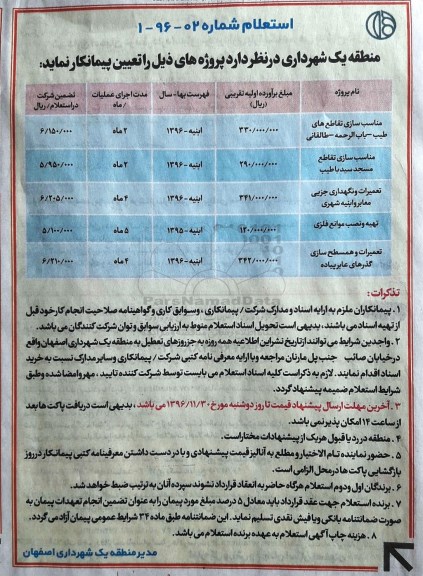 استعلام شماره ۰۲-۹۶-۱
منطقه یک شهرداری در نظر دارد پروژه های ذیل را تعیین پیمانکار نماید:
نام پروژه مبلغ برآورد اولیه تقریبی (ریال) فهرست بها - سال مدت اجرای عملیات / ماه تضمین شرکت در استعلام / ریال
مناسب سازی تقاطع های طیب -باب الرحمه -طالقانی ۳۳۰/۰۰۰/۰۰۰ ابنیه - ۱۳۹۶ ۲ ماه ۶/۱۵۰/۰۰۰
مناسب سازی تقاطع مسجد سید با طیب ۲۹۰/۰۰۰/۰۰۰ ابنیه - ۱۳۹۶ ۲ ماه ۵/۹۵۰/۰۰۰
تعمیرات و نگهداری جزیی معابر و ابنیه شهری ۳۴۱/۰۰۰/۰۰۰ ابنیه - ۱۳۹۶ ۴ ماه ۶/۲۰۵/۰۰۰
تهیه و نصب موانع فلزی ۱۲۰/۰۰۰/۰۰۰ ابنیه - ۱۳۹۵ ۵ ماه ۵/۱۰۰/۰۰۰
تعمیرات و همسطح سازی گذرهای عابر پیاده ۳۴۲/۰۰۰/۰۰۰ ابنیه - ۱۳۹۶ ۴ ماه ۶/۲۱۰/۰۰۰
ParsNamadData
تذکرات :
۱ . پیمانکاران ملزم به ارایه اسناد و مدارک شرکت / پیمانکاری ، وسوابق کاری و گواهینامه صلاحیت انجام کار خود قبل
از تهیه اسناد می باشند . بدیهی است تحویل اسناد استعلام منوط به ارزیابی سوابق و توان شرکت کنندگان می باشد.
۲ . واجدین شرایط می توانند از تاریخ نشر این اطلاعیه همه روزه به جز روزهای تعطیل به منطقه یک شهرداری اصفهان واقع
در خیابان صائب جنب پل مارنان مراجعه و با ارایه معرفی نامه کتبی شرکت / پیمانکاری و سایر مدارک نسبت به خرید
اسناد اقدام نمایند . لازم به ذکر است کلیه اسناد استعلام می بایست توسط شرکت کننده تایید ، مهر و امضا شده و طبق
شرایط استعلام ضمیمه پیشنهاد گردد.
۳ . آخرین مهلت ارسال پیشنهاد قیمت تا روز دوشنبه مورخ ۱۳۹۶/۱۱/۳۰ می باشد ، بدیهی است دریافت پاکت ها بعد
از ساعت ۱۴ امکان پذیر نمی باشد.
۴ . منطقه در رد یا قبول هر یک از پیشنهادات مختار است.
۵ . حضور نماینده تام الاختیار و مطلع به آنالیز قیمت پیشنهادی و با در دست داشتن معرفینامه کتبی پیمانکار در روز
بازگشایی پاکت ها در محل الزامی است .
۶ . برندگان اول و دوم استعلام هرگاه حاضر به انعقاد قرارداد نشوند سپرده آنان به ترتیب ضبط خواهد شد.
۷ . برنده استعلام جهت عقد قرارداد باید معادل ۵ درصد مبلغ مورد پیمان را به عنوان تضمین انجام تعهدات پیمان به
صورت ضمانتنامه بانکی و یا فیش نقدی تسلیم نماید . این ضمانتنامه طبق ماده ۳۴ شرایط عمومی پیمان آزاد می گردد .
۸ . هزینه چاپ آگهی استعلام به عهده برنده استعلام می باشد .
مدیر منطقه یک شهرداری اصفهان